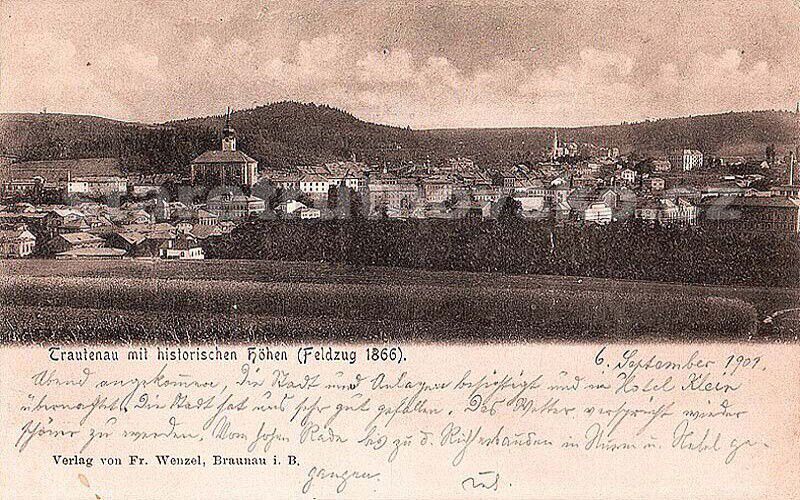 Trautenau mit historischen Höhen (Feldzug 1866).
6. September 1901.
Abend angekommen, die Stadt und Anlagen besichtigt und in Hotel Klein
übernachtet. Die Stadt hat uns sehr gut gefallen. Das Wetter verspricht wieder
schöner zu werden. Vom hohen Rade bis zu d. Richterbauden in Sturm u. Nebel ge-
Verlag von Fr. Wenzel, Braunau i. B.
gangen.